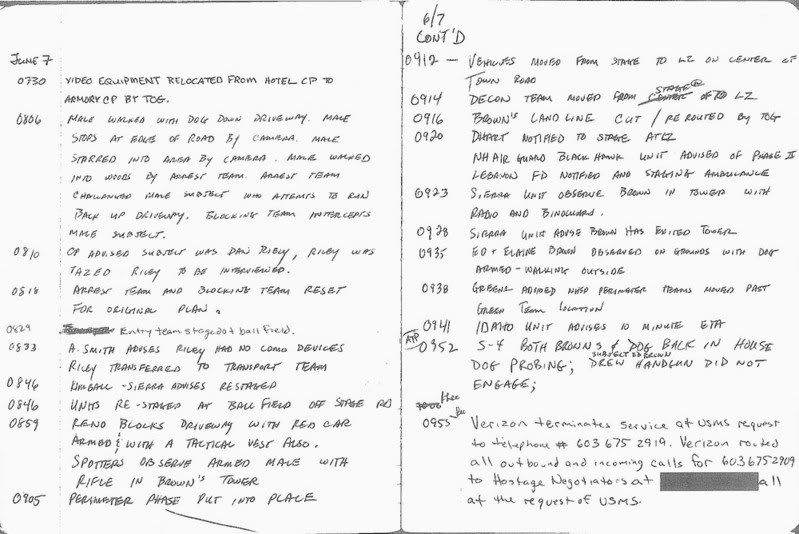 JUNE 7
0730 VIDEO EQUIPMENT RELOCATED FROM HOTEL CP TO
ARMORY CP BY TOG.
0806 MALE WALKED WITH DOG DOWN DRIVEWAY. MALE
STOPS AT EDGE OF ROAD BY CAMERA. MALE
STARRED INTO AREA BY CAMERA. MALE WALKED
INTO WOODS BY ARREST TEAM. ARREST TEAM
CHALLANGED MALE SUBJECT WHO ATTEMTS TO RUN
BACK UP DRIVEWAY. BLOCKING TEAM INTERCEPTS
MALE SUBJECT.
0810 CP ADVISED SUBJECT WAS DAN RIELY, RILEY WAS
TAZED RILEY TO BE INTERVIEWED.
0818 ARREST TEAM AND BLOCKING TEAM RESET
FOR ORIGINAL PLAN.
0829 Entry team staged at ball field.
0833 A. SMITH ADVISES RILEY HAD NO COMO DEVICES
RILEY TRANSFERED TO TRANSPORT TEAM
0846 KIMBALL - SIERRA ADVISES RESTAGED
0846 UNITS RE-STAGED AT BALL FIELD OFF STAGE RD
0859 RENO BLOCKS DRIVEWAY WITH RED CAR
ARMED & WITH A TACTICAL VEST ALSO.
SPOTTERS OBSERVE ARMED MALE WITH
RIFLE IN BROWN'S TOWER
0905 PERIMETER PHASE PUT INTO PLACE
6/7
CONT'D
0912 — VEHICLES MOVED FROM STAGE TO LZ ON CENTER OF
TOWN ROAD
0914 DECON TEAM MOVED FROM CENTER STAGE TO LZ
0916 BROWN'S LAND LINE CUT / REROUTED BY TOG
0920 DHART NOTIFIED TO STAGE AT LZ
NH AIR GUARD BLACK HAWK UNIT ADVISED OF PHASE II
LEBANON FD NOTIFIED AND STAGING AMBULANCE
0923 SIERRA UNIT OBSERVE BROWN IN TOWER WITH
RADIO AND BINOULARS.
0928 SIERRA UNIT ADVISE BROWN HAS EXITED TOWER
0935 ED & ELAINE BROWN OBSERVED ON GROUNDS WITH DOG
ARMED - WALKING OUTSIDE
0938 GREENE ADVISED NHSP PERIMETER TEAMS MOVED PAST
GREEN TEAM LOCATION
0941 IDAHO UNIT ADVISES 10 MINUTE ETA
0952 S-4 BOTH BROWNS & DOG BACK IN HOUSE
DOG PROBING; SUBJECT ED BROWN DREW HANDGUN DID NOT
ENGAGE;
0955 Verizon terminates service at USMS request
to telephone # 603 675 2919. Verizon routed
all outbound and incoming calls for 603 675 2909
to Hostage Negotiators at all
at the request of USMS.